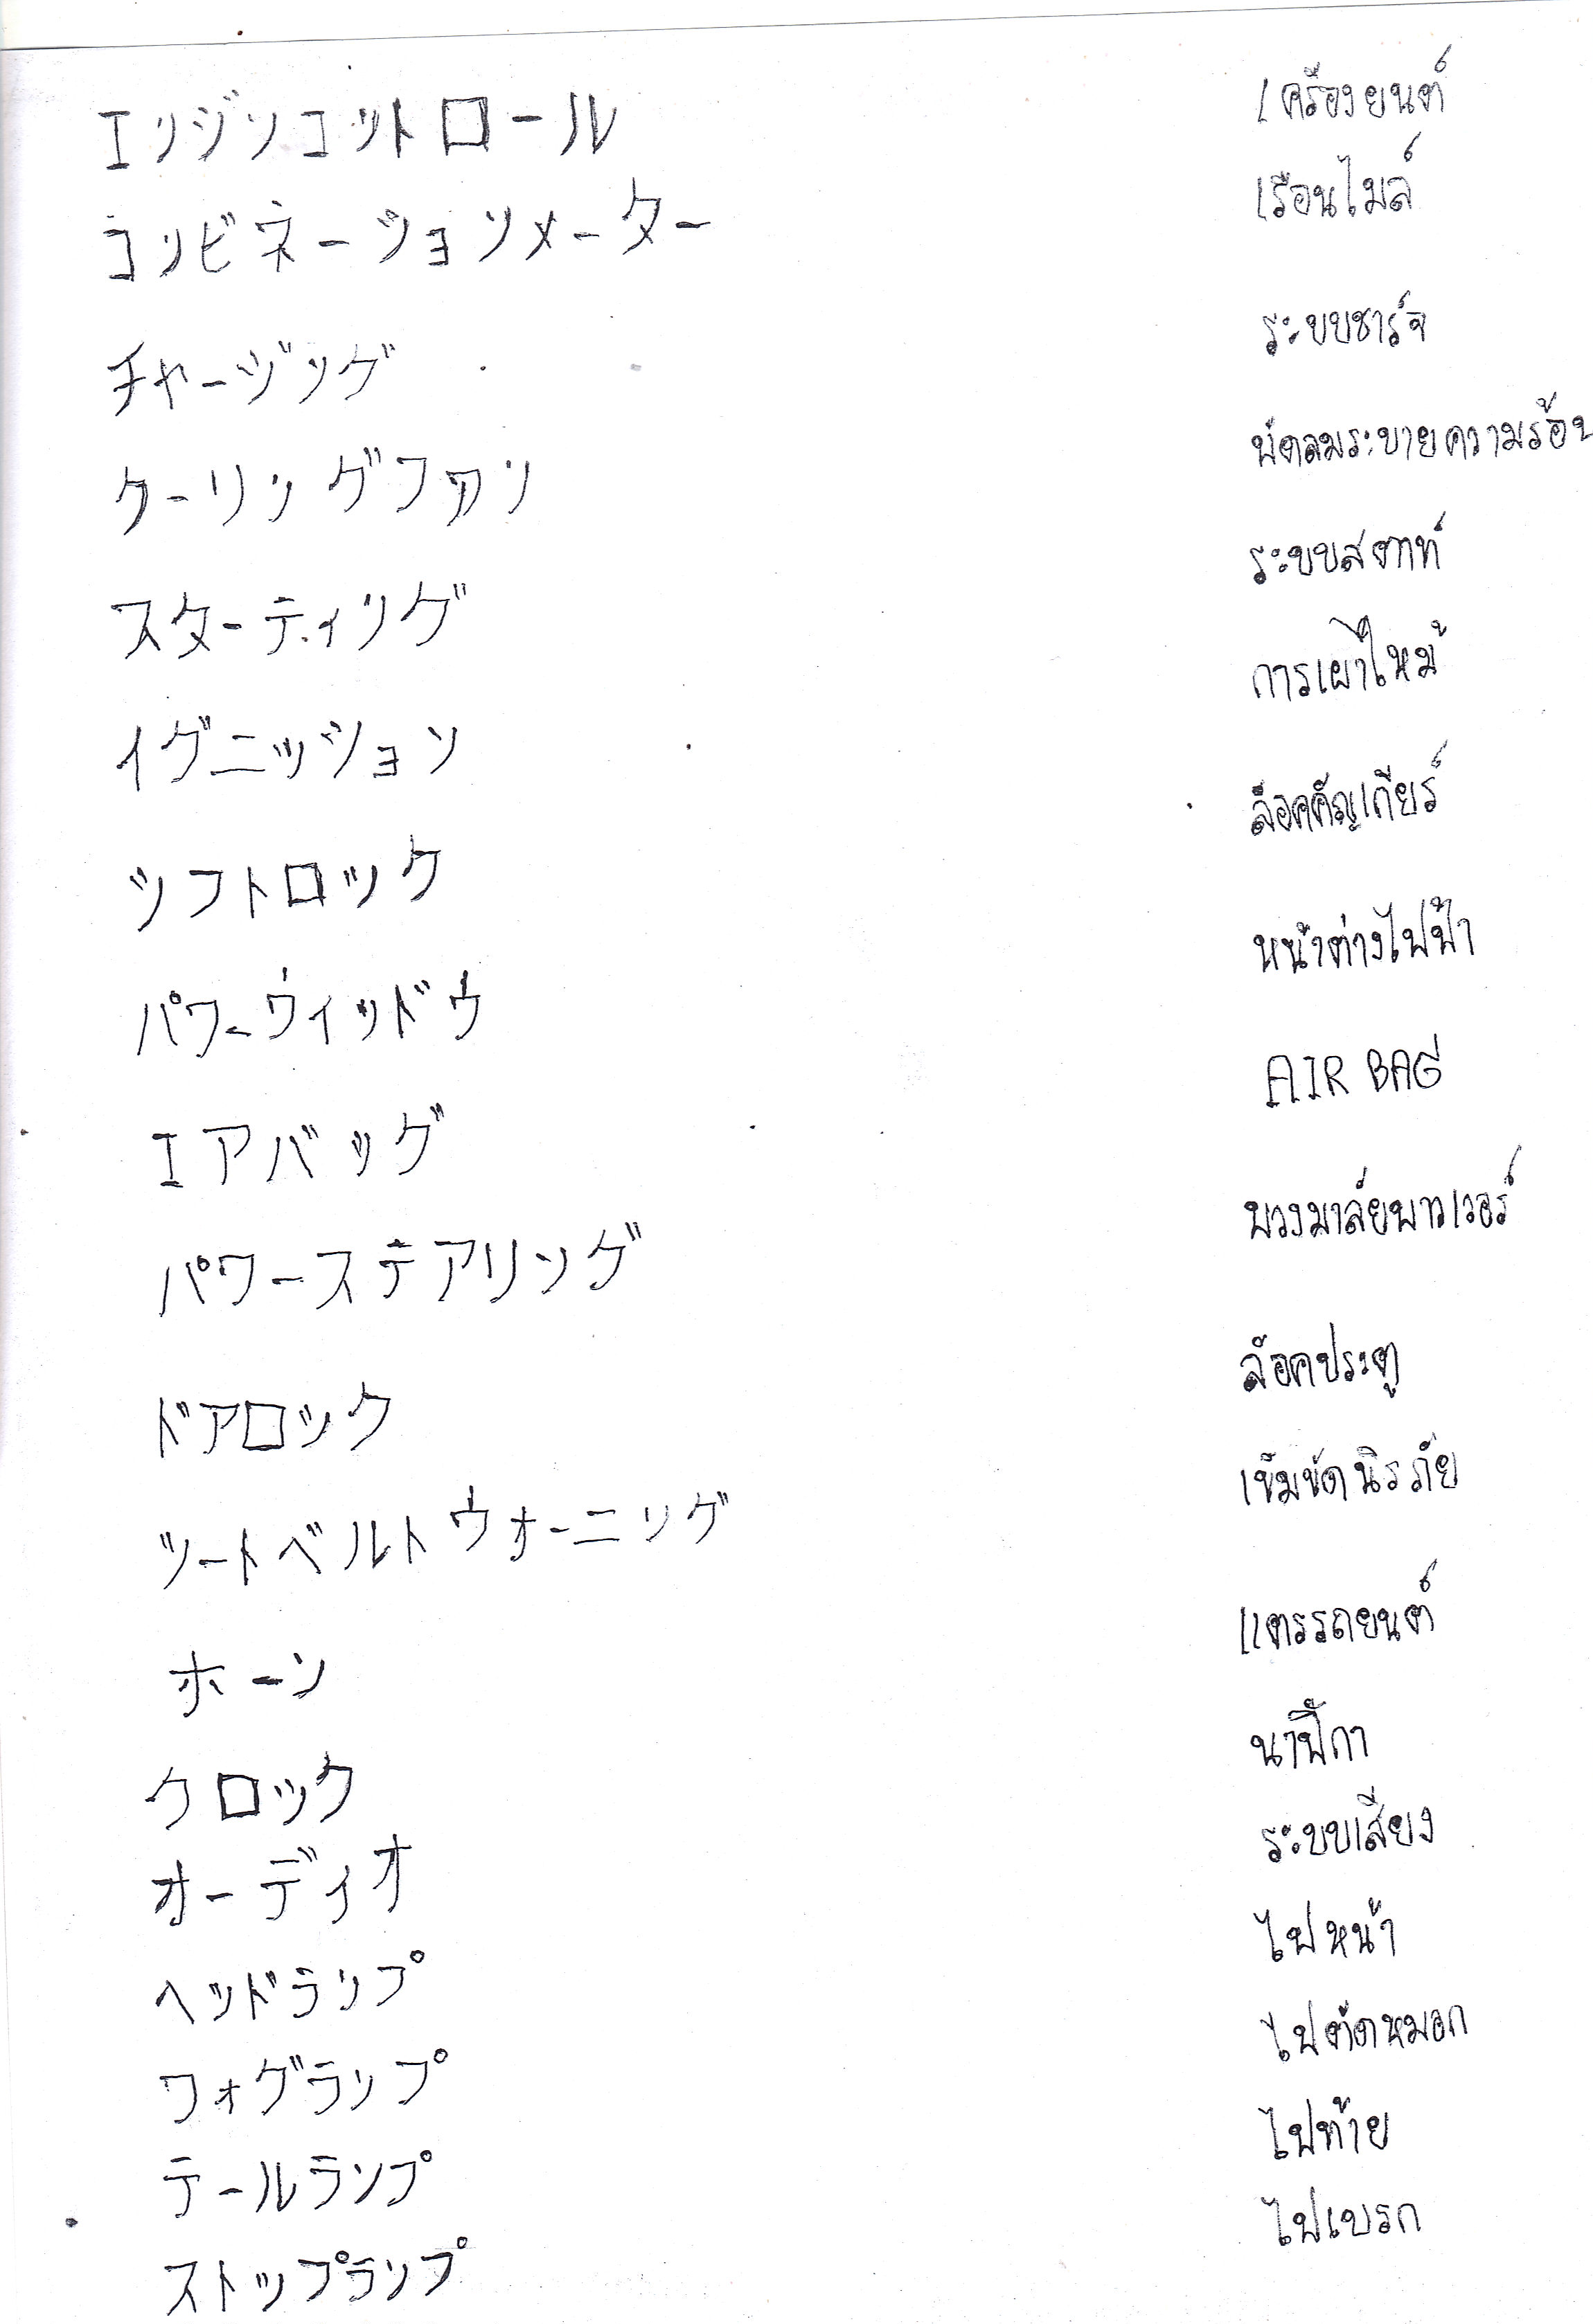 エンジンコントロール เครื่องยนต์
コンビネーションメーター เรือนไมล์
チャージング ระบบชาร์จ
クーリングファン พัดลมระบายความร้อน
スターティング ระบบสตาท์
イグニッション การเผาไหม้
シフトロック ล๊อคคัญเกียร์
パワーウィンドウ หน้าต่างไฟฟ้า
エアバッグ AIR BAG
パワーステアリング พวงมาลัยพาวเวอร์
ドアロック ล๊อคประตู
シートベルトウォーニング เข็มขัดนิรภัย
ホーン แตรรถยนต์
クロック นาฬิกา
オーディオ ระบบเสียง
ヘッドランプ ไฟหน้า
フォグランプ ไฟตัดหมอก
テールランプ ไฟท้าย
ストップランプ ไฟเบรก